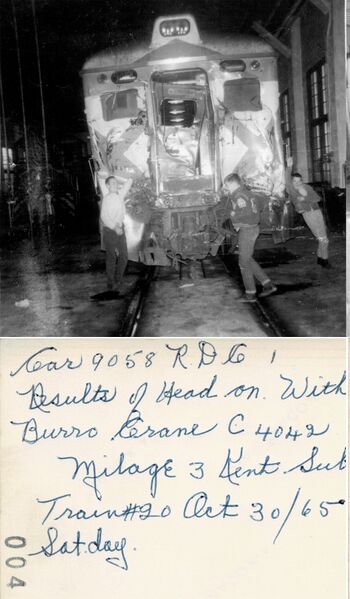 Car 9058 R.D.C 1
Results of Head on. With
Burro Crane C 4042
Milage 3 Kent. Sub
Train#20 Oct 30/65
Sat.day.
004